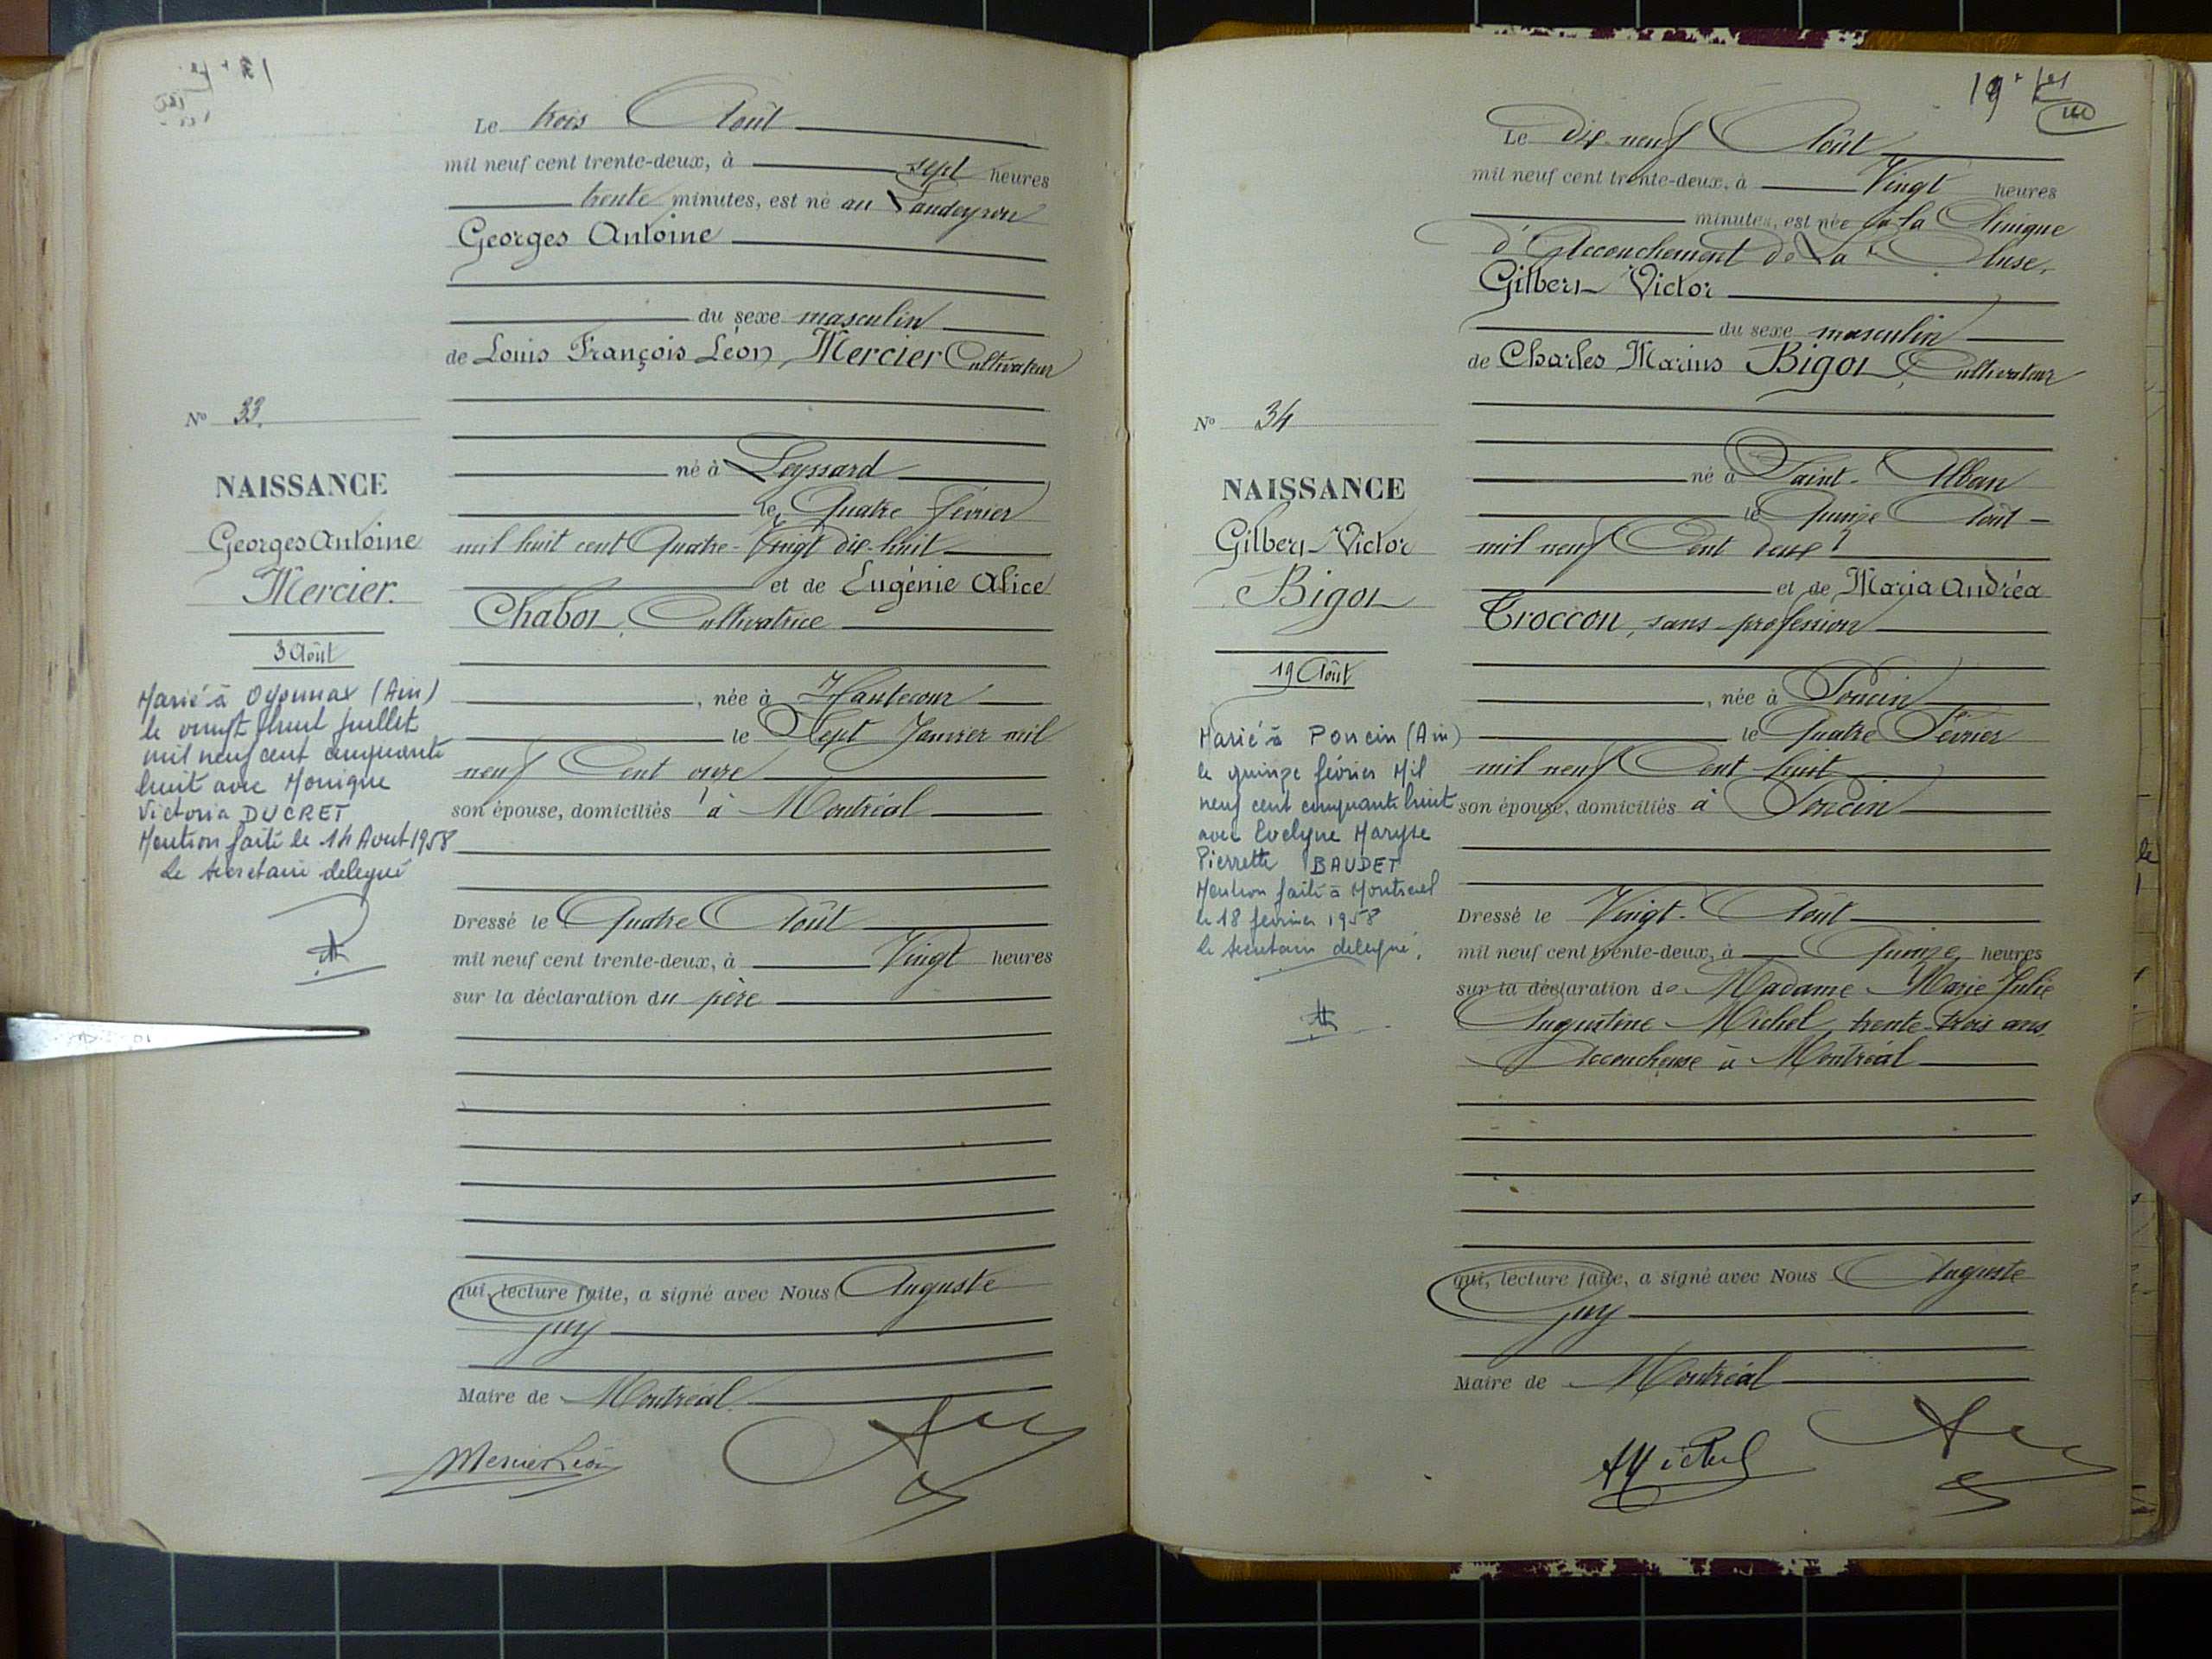 Le trois Août
mil neuf cent trente-deux, à sept heures
trente minutes, est né au Landeyron
Georges Antoine
du sexe masculin
de Louis François Léon Mercier Cultivateur
né à Leyssard
le Quatre février
mil huit cent Quatre-Vingt dix-huit
et de Eugénie Alice
Chabot, Cultivatrice
, née à Hautecour
le Sept Janvier mil
neuf Cent onze
son épouse, domiciliés à Montréal
Dressé le Quatre Août
mil neuf cent trente-deux, à Vingt heures
sur la déclaration du père
qui, lecture faite, a signé avec Nous Auguste
Guy
Maire de Montréal
Mercier Léon
No 33.
NAISSANCE
Georges Antoine
Mercier.
3 Août
Marié à Oyonnax (Ain)
le vingt huit juillet
mil neuf cent cinquante
huit avec Monique
Victoria DUCRET
Mention faite le 14 Aout 1958
Le secretaire delegué
19
Le dix-neuf Août
mil neuf cent trente-deux, à Vingt heures
minutes, est née à la Clinique
d'Accouchement de La Cluse,
Gilbert Victor
du sexe masculin
de Charles Marius Bigot, Cultivateur
né à Saint-Alban
le Quinze Août
mil neuf Cent deux
et de Maria Andréa
Troccon, sans profession
, née à Poncin
le Quatre Février
mil neuf Cent huit
son épouse, domiciliés à Poncin
Dressé le Vingt Août
mil neuf cent trente-deux, à Quinze heures
sur la déclaration de Madame Marie Julie
Augustine Michel, trente-trois ans,
Accoucheuse à Montréal
qui, lecture faite, a signé avec Nous Auguste
Guy
Maire de Montréal
AMichel
No 34
NAISSANCE
Gilbert Victor
Bigot
19 Août
Marié à Poncin (Ain)
le quinze février Mil
neuf cent cinquante huit
avec Evelyne Maryse
Pierrette BAUDET
Mention faite à Montreal
le 18 fevrier 1958
le secretaire delegué.